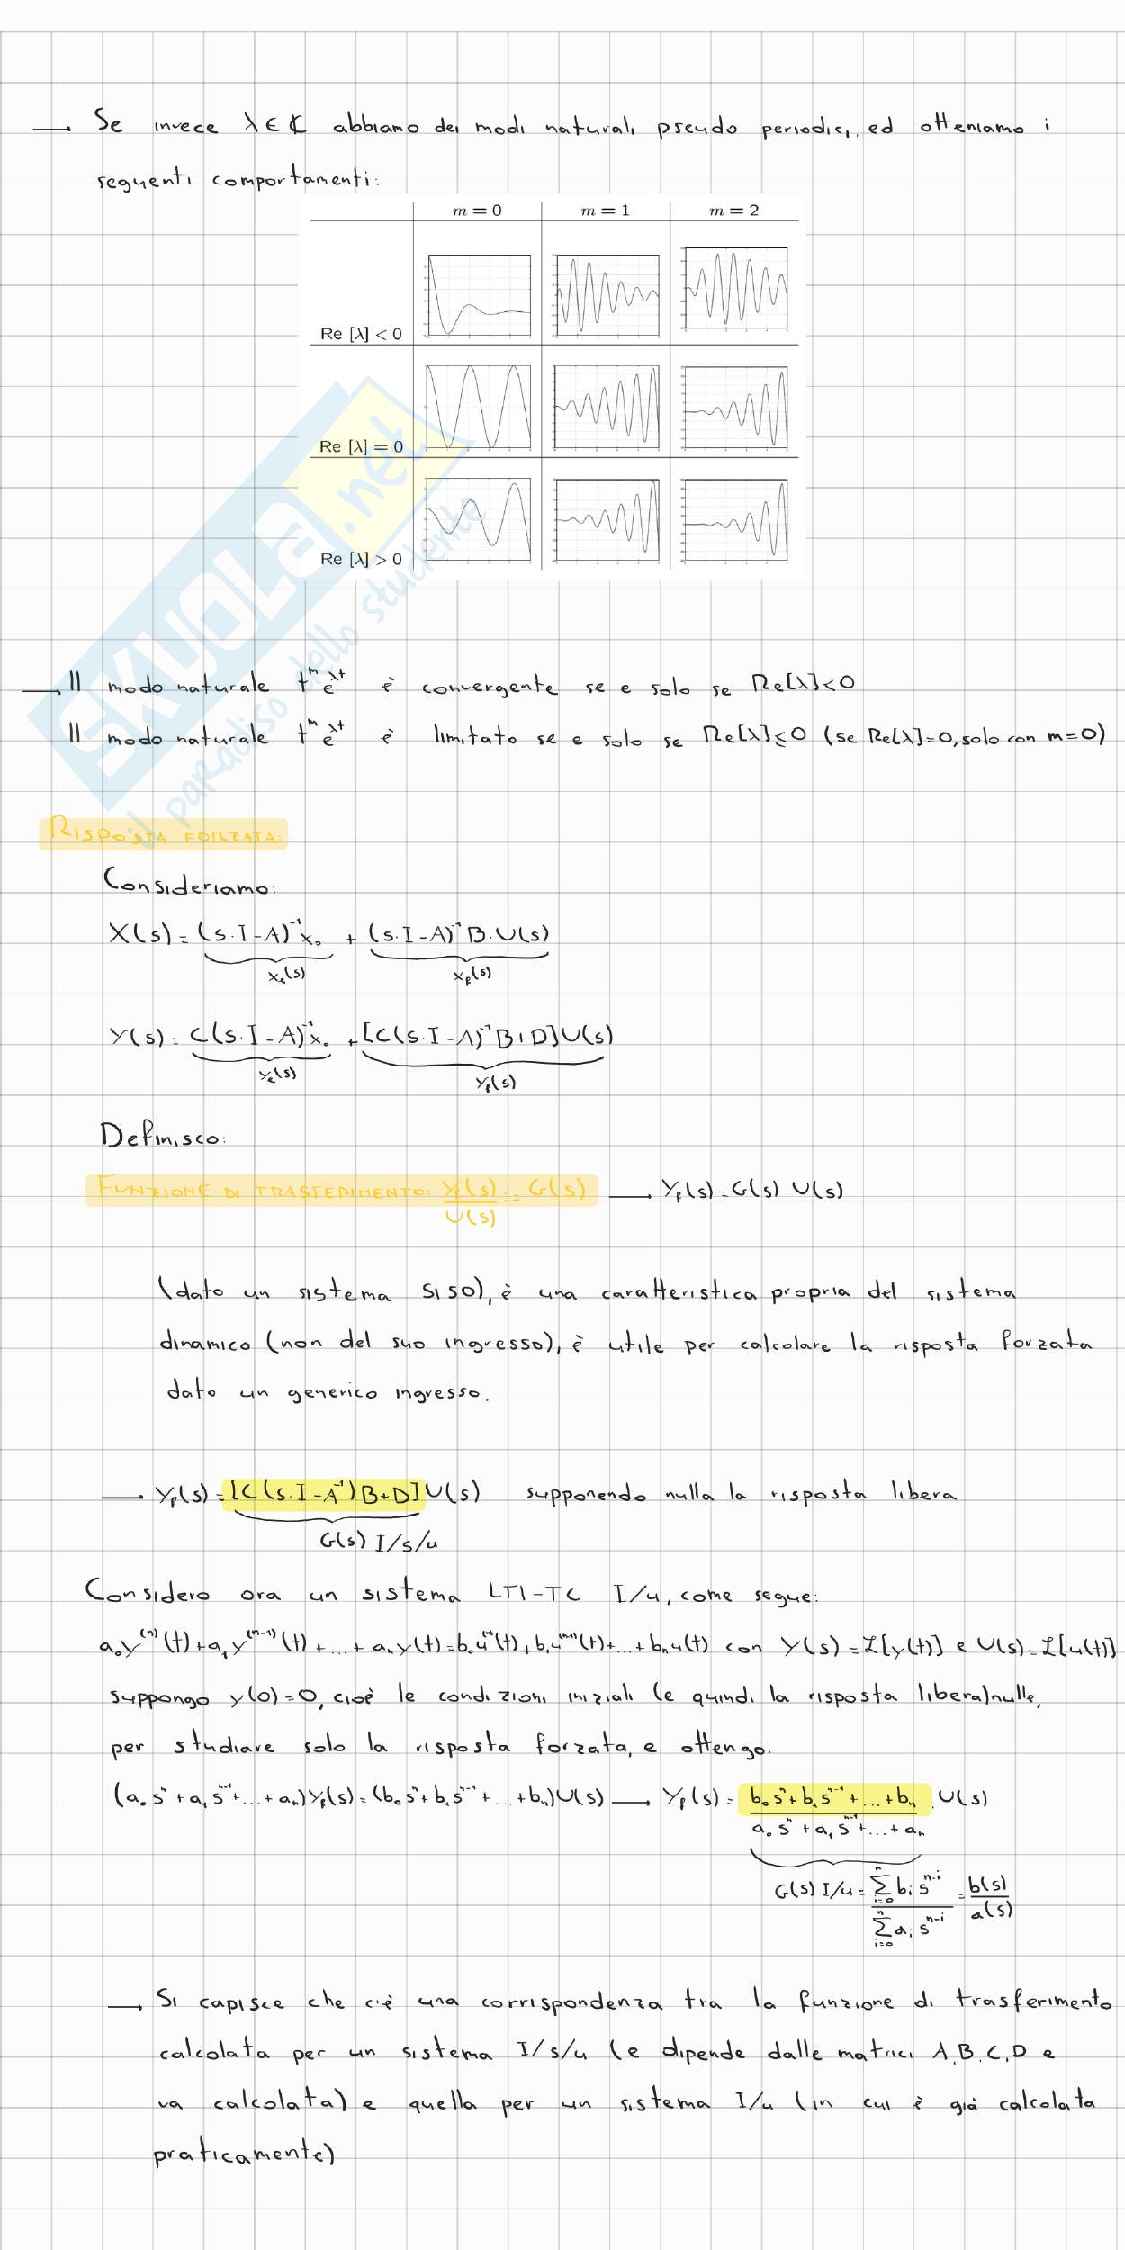 → Se invece λ∈ℂ abbiamo dei modi naturali pseudo periodici, ed otteniamo i
seguenti comportamenti:
m = 0 m = 1 m = 2
Re [λ] < 0
Re [λ] = 0
Re [λ] > 0
SKUOLA.net
il paradiso dello studente
→ Il modo naturale t^m e^λt è convergente se e solo se Re[λ]<0
Il modo naturale t^m e^λt è limitato se e solo se Re[λ]≤0 (se Re[λ]=0, solo con m=0)
RISPOSTA FORZATA:
Consideriamo:
X(s) = (s·I-A)^-1 x₀ + (s·I-A)^-1 B·U(s)
x_l(s) x_f(s)
Y(s) = C(s·I-A)^-1 x₀ + [C(s·I-A)^-1 B+D]U(s)
y_l(s) y_f(s)
Definisco:
FUNZIONE DI TRASFERIMENTO: Y_f(s)/U(s) = G(s) → Y_f(s) = G(s) U(s)
(dato un sistema SISO), è una caratteristica propria del sistema
dinamico (non del suo ingresso), è utile per calcolare la risposta forzata
dato un generico ingresso.
→ Y_f(s) = [C(s·I-A^-1)B+D]U(s) supponendo nulla la risposta libera
G(s) I/s/u
Considero ora un sistema LTI-TC I/u, come segue:
a₀y^(n)(t)+a₁y^(n-1)(t)+...+aₙy(t)=b₀u^(n)(t)+b₁u^(n-1)(t)+...+bₙu(t) con Y(s)=ℒ[y(t)] e U(s)=ℒ[u(t)]
suppongo y(0)=0, cioè le condizioni iniziali (e quindi la risposta libera) nulle,
per studiare solo la risposta forzata, e ottengo:
(a₀s^n+a₁s^n-1+...+aₙ)Y_f(s)=(b₀s^n+b₁s^n-1+...+bₙ)U(s) → Y_f(s) = b₀s^n+b₁s^n-1+...+bₙ · U(s)
a₀s^n+a₁s^n-1+...+aₙ
G(s) I/u = Σ_{i=0}^n b_i s^n-i / Σ_{i=0}^n a_i s^n-i = b(s)/a(s)
→ Si capisce che c'è una corrispondenza tra la funzione di trasferimento
calcolata per un sistema I/s/u (e dipende dalle matrici A,B,C,D e
va calcolata) e quella per un sistema I/u (in cui è già calcolata
praticamente)